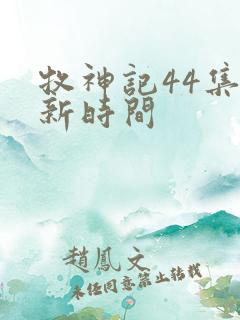 牧神記44集
新時間
趙鳳文
未经同意禁止转载